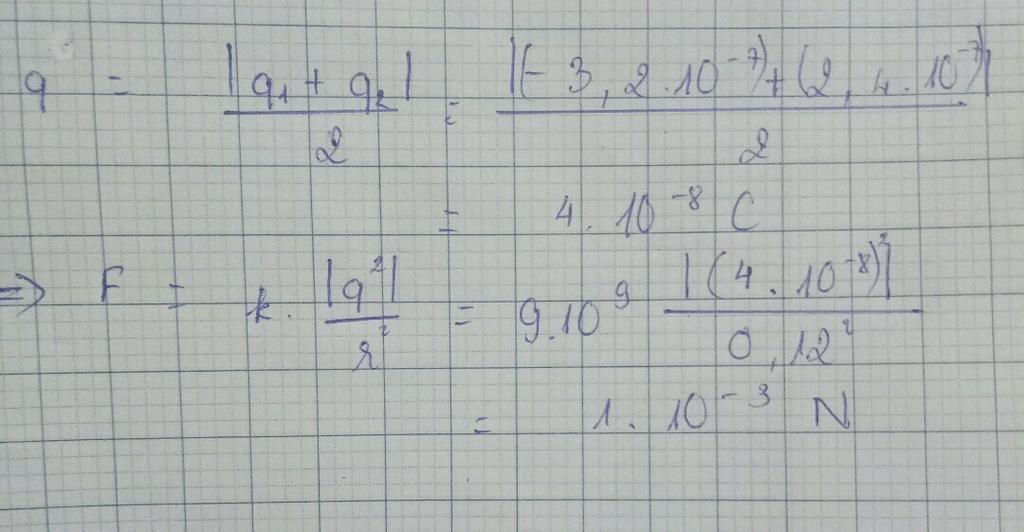 q = |q₁ + q₂| / 2 = |(- 3,2.10⁻⁷) + (2,4.10⁻⁷)| / 2
= 4.10⁻⁸ C
=> F = k. |q²| / r² = 9.10⁹ |(4.10⁻⁸)²| / 0,12²
= 1.10⁻³ N